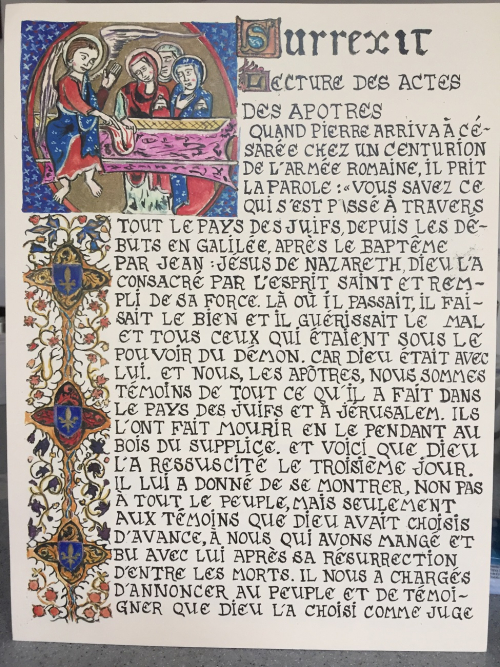 SURREXIT
LECTURE DES ACTES
DES APOTRES
QUAND PIERRE ARRIVA À CÉ-
SARÉE CHEZ UN CENTURION
DE L'ARMÉE ROMAINE, IL PRIT
LA PAROLE : «VOUS SAVEZ CE
QUI S'EST PASSÉ À TRAVERS
TOUT LE PAYS DES JUIFS, DEPUIS LES DÉ-
BUTS EN GALILÉE, APRÈS LE BAPTÊME
PAR JEAN : JÉSUS DE NAZARETH, DIEU L'A
CONSACRÉ PAR L'ESPRIT SAINT ET REM-
PLI DE SA FORCE. LÀ OÙ IL PASSAIT, IL FAI-
SAIT LE BIEN ET IL GUÉRISSAIT LE MAL
ET TOUS CEUX QUI ÉTAIENT SOUS LE
POUVOIR DU DÉMON. CAR DIEU ÉTAIT AVEC
LUI. ET NOUS, LES APÔTRES, NOUS SOMMES
TÉMOINS DE TOUT CE QU'IL A FAIT DANS
LE PAYS DES JUIFS ET À JÉRUSALEM. ILS
L'ONT FAIT MOURIR EN LE PENDANT AU
BOIS DU SUPPLICE. ET VOICI QUE DIEU
L'A RESSUSCITÉ LE TROISIÈME JOUR.
IL LUI A DONNÉ DE SE MONTRER, NON PAS
À TOUT LE PEUPLE, MAIS SEULEMENT
AUX TÉMOINS QUE DIEU AVAIT CHOISIS
D'AVANCE, À NOUS QUI AVONS MANGÉ ET
BU AVEC LUI APRÈS SA RÉSURRECTION
D'ENTRE LES MORTS. IL NOUS A CHARGÉS
D'ANNONCER AU PEUPLE ET DE TÉMOI-
GNER QUE DIEU L'A CHOISI COMME JUGE